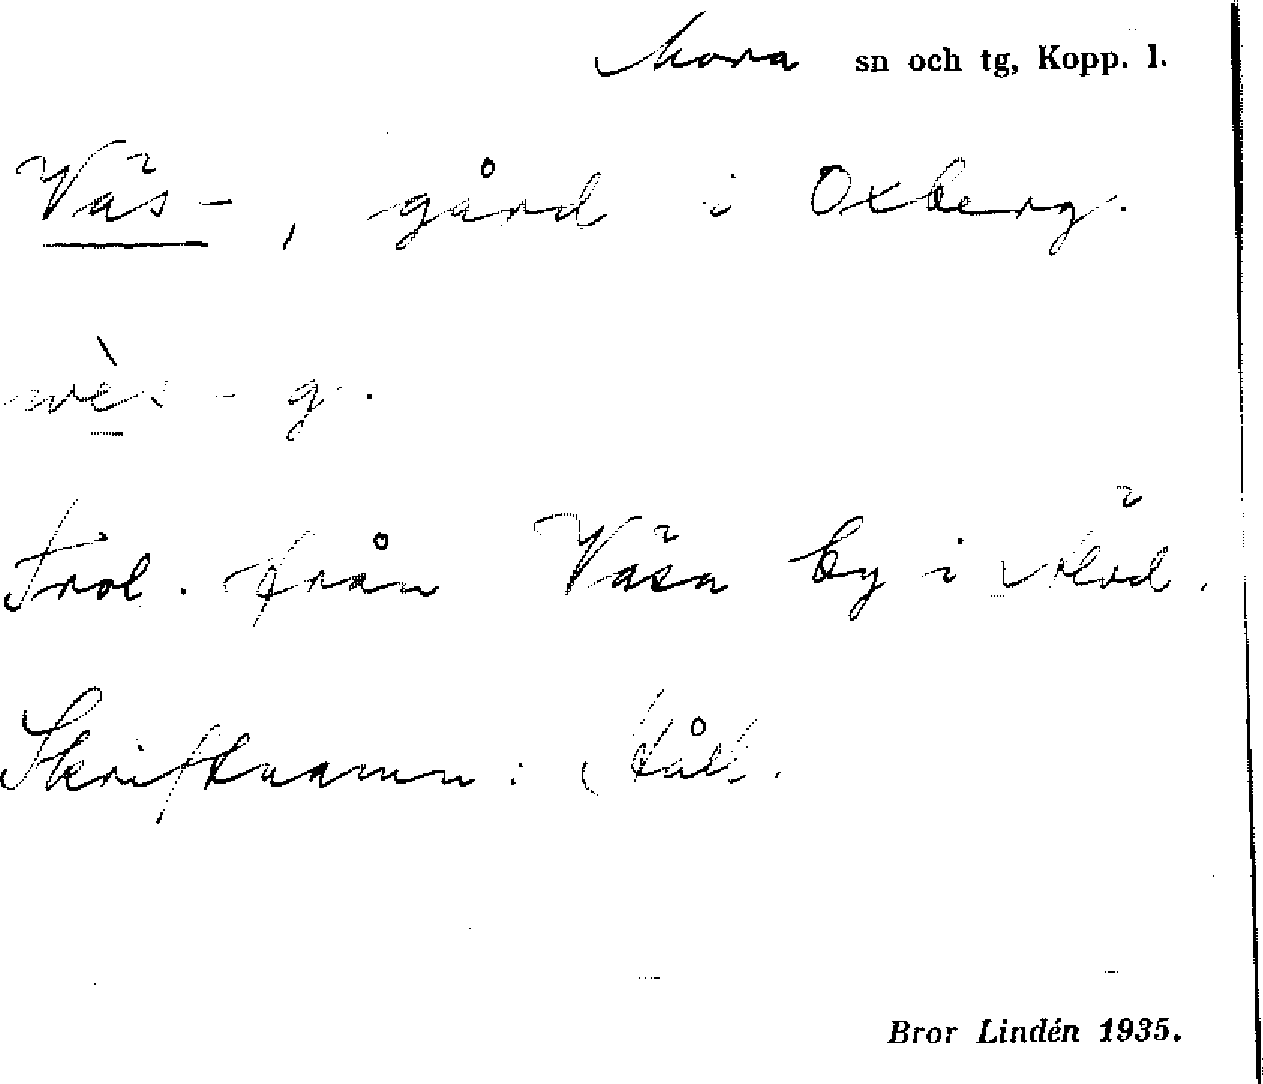 Mora sn och tg, Kopp. l.
Väs-, gård i Oxberg.
wès - g.
Trol. från Väsa by i Älvd.
Skriftnamn:
Bror Lindén 1935.